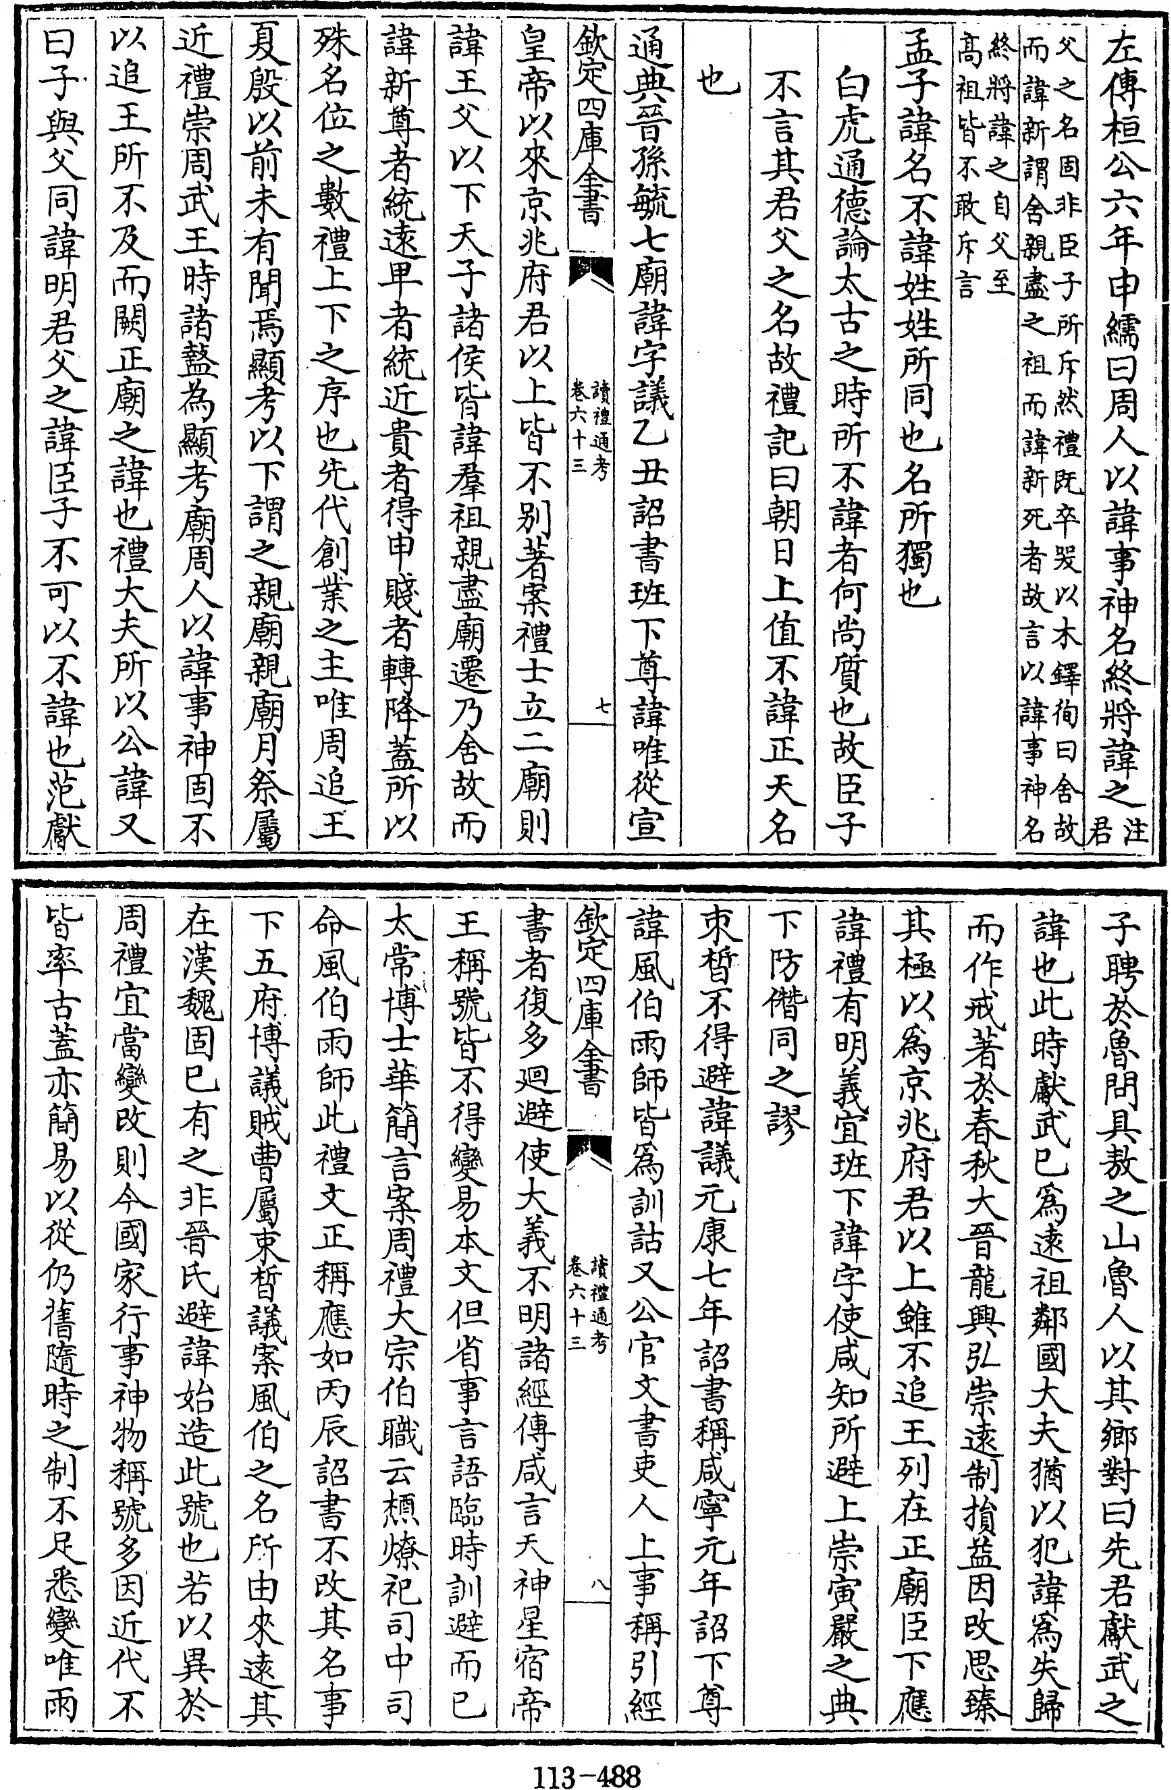 左傳桓公六年申繻曰周人以諱事神名終將諱之注君
父之名固非臣子所斥然禮既卒哭以木鐸徇曰舍故
而諱新謂舍親盡之祖而諱新死者故言以諱事神名
終將諱之自父至
高祖皆不敢斥言
孟子諱名不諱姓姓所同也名所獨也
白虎通德論太古之時所不諱者何尚質也故臣子
不言其君父之名故禮記曰朝日上值不諱正天名
也
通典晉孫毓七廟諱字議乙丑詔書班下尊諱唯從宣
欽定四庫全書
讀禮通考
卷六十三
七
皇帝以來京兆府君以上皆不别著案禮士立二廟則
諱王父以下天子諸侯皆諱羣祖親盡廟遷乃舍故而
諱新尊者統遠卑者統近貴者得申賤者轉降蓋所以
殊名位之數禮上下之序也先代創業之主唯周追王
夏殷以前未有聞焉顯考以下謂之親廟親廟月祭屬
近禮崇周武王時諸盩為顯考廟周人以諱事神固不
以追王所不及而闕正廟之諱也禮大夫所以公諱又
曰子與父同諱明君父之諱臣子不可以不諱也范獻
子聘於魯問具敖之山魯人以其鄉對曰先君獻武之
諱也此時獻武已為遠祖鄰國大夫猶以犯諱為失歸
而作戒著於春秋大晉龍興弘崇遠制損益因改思臻
其極以為京兆府君以上雖不追王列在正廟臣下應
諱禮有明義宜班下諱字使咸知所避上崇寅嚴之典
下防僭同之謬
束晳不得避諱議元康七年詔書稱咸寧元年詔下尊
諱風伯雨師皆為訓詁又公官文書吏人上事稱引經
欽定四庫全書
讀禮通考
卷六十三
八
書者復多迴避使大義不明諸經傳咸言天神星宿帝
王稱號皆不得變易本文但省事言語臨時訓避而已
太常博士華簡言案周禮大宗伯職云槱燎祀司中司
命風伯雨師此禮文正稱應如丙辰詔書不改其名事
下五府博議賊曹屬束晳議案風伯之名所由來遠其
在漢魏固已有之非晉氏避諱始造此號也若以異於
周禮宜當變改則今國家行事神物稱號多因近代不
皆率古蓋亦簡易以從仍舊隨時之制不足悉變唯雨
113-488